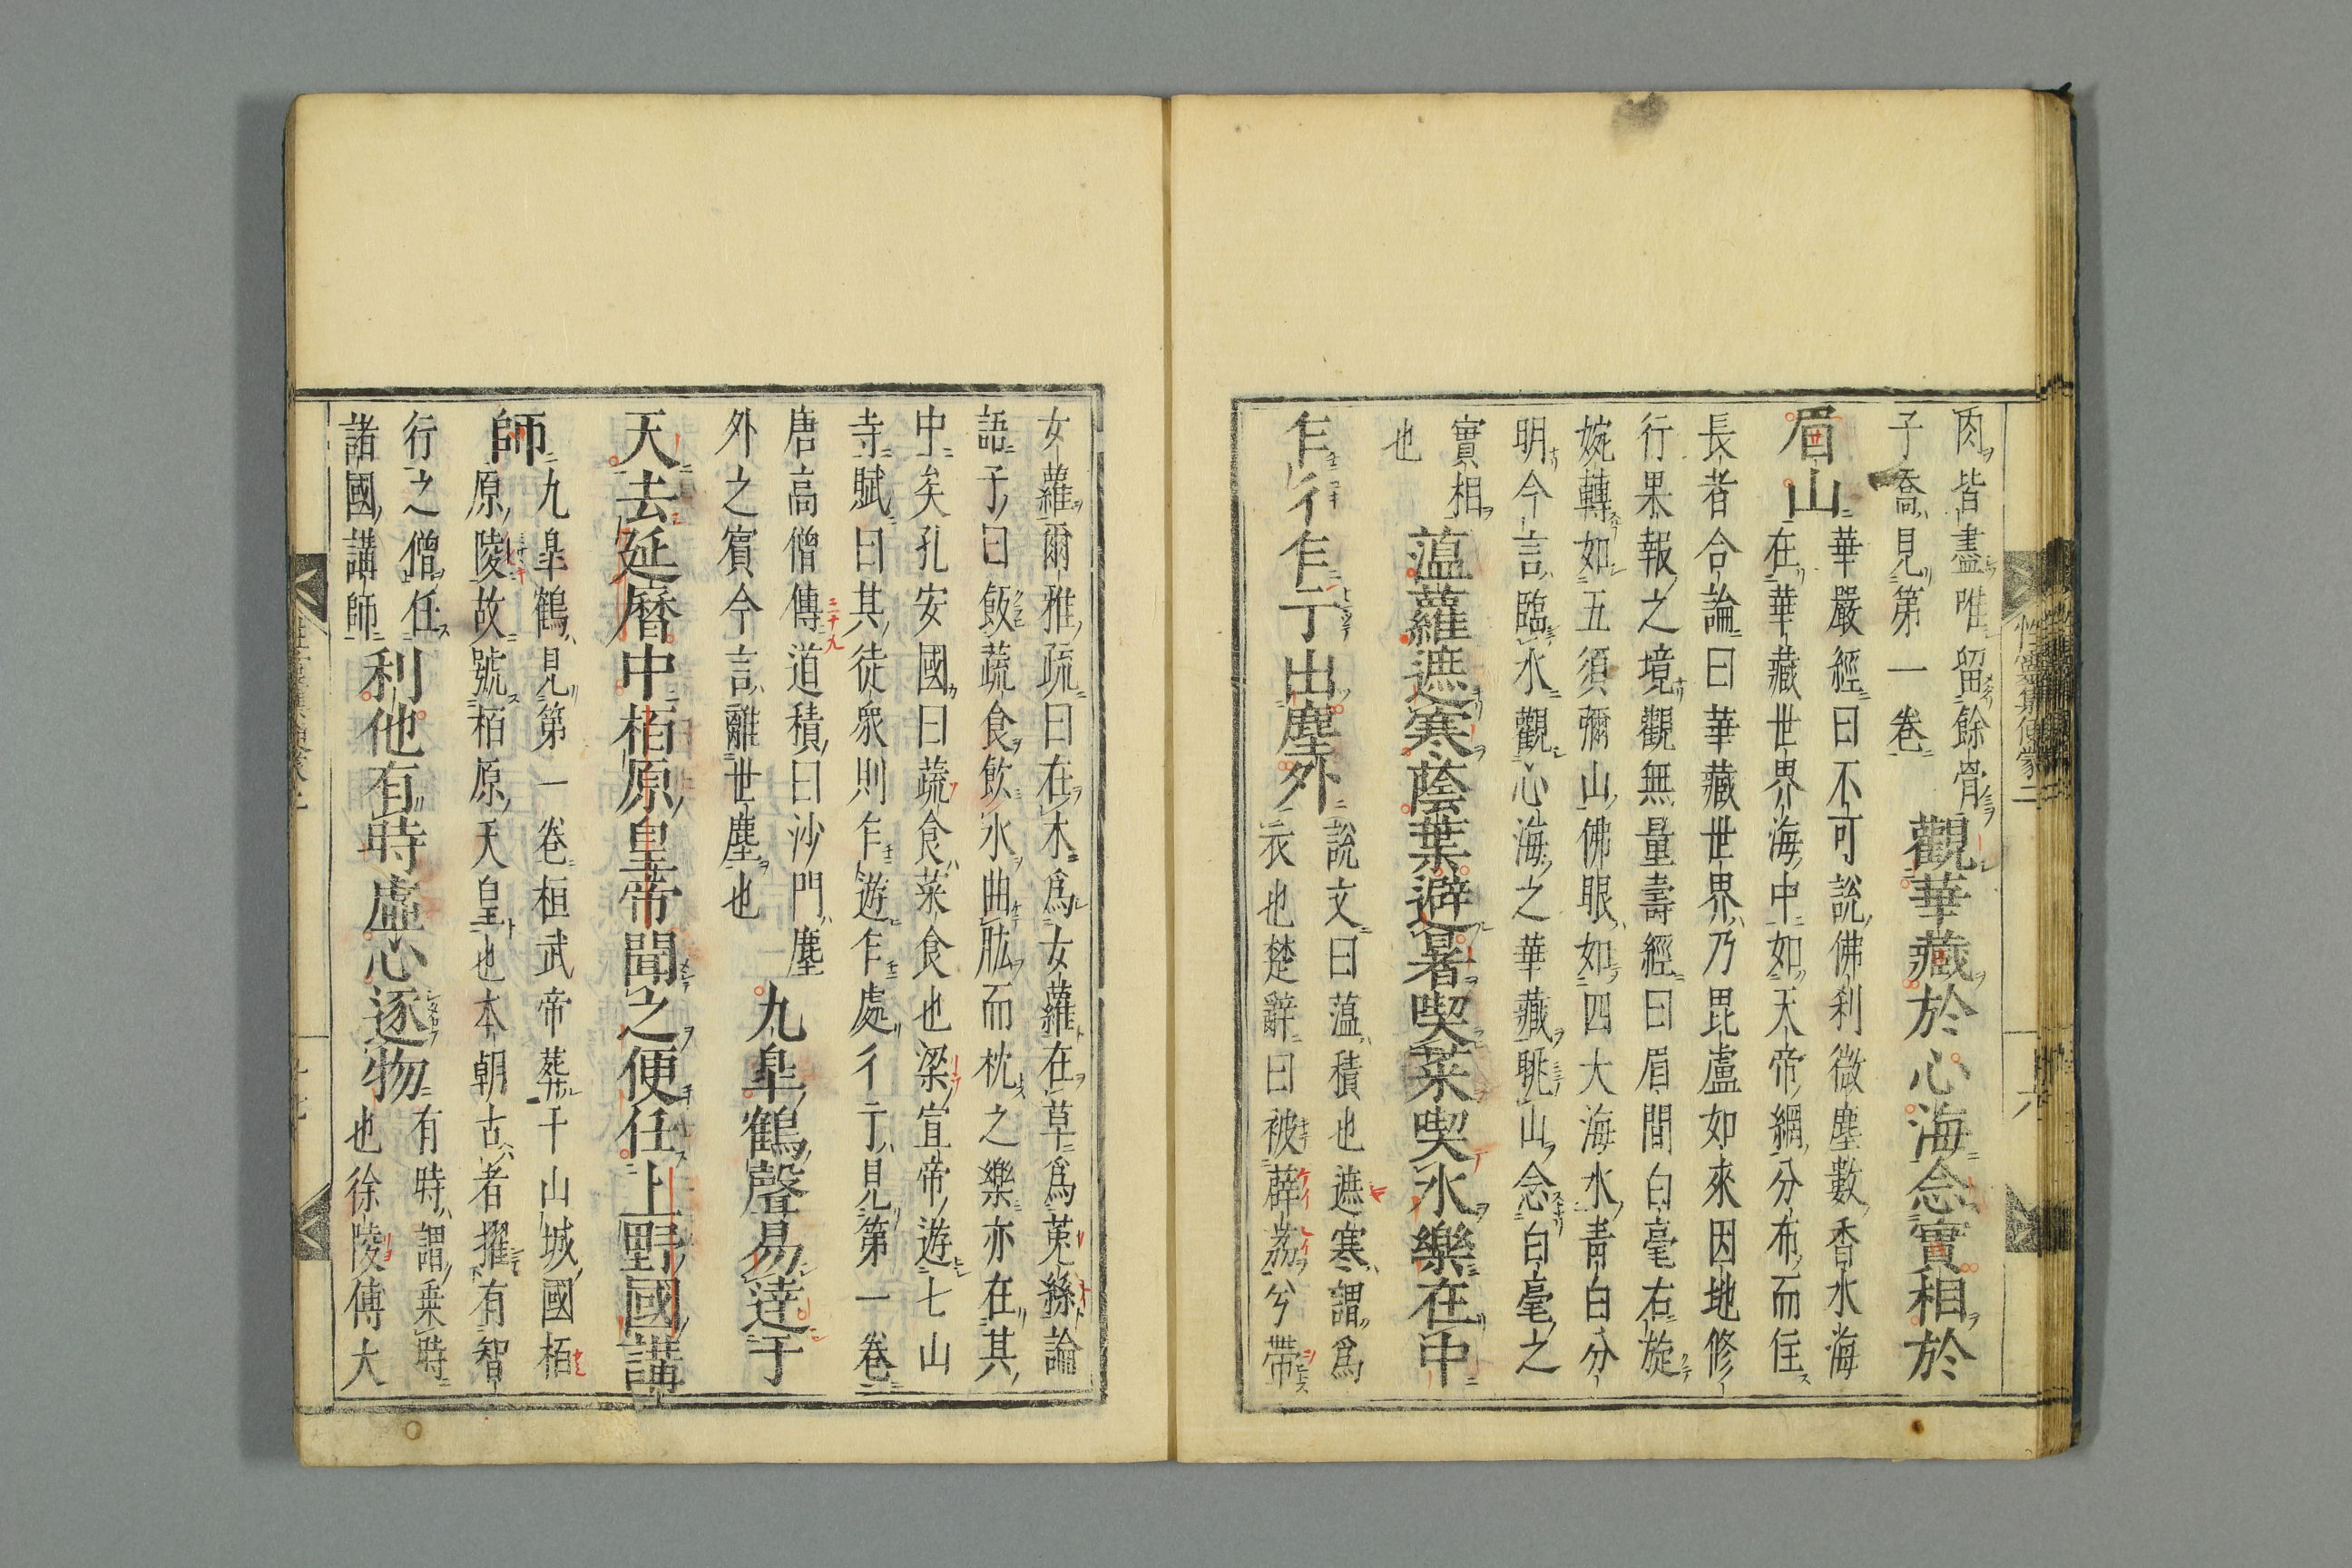 肉皆盡唯留餘骨
子喬見第一卷
觀華藏於心海念實相於
眉山
華嚴經曰不可說佛刹微塵數香水海
在華藏世界海中如天帝網分布而住
長者合論曰華藏世界乃毘盧如來因地修
行果報之境觀無量壽經曰眉間白毫右旋
婉轉如五須彌山佛眼如四大海水靑白分
明今言臨水觀心海之華藏眺山念白毫之
實相
也
薀蘿遮寒蔭葉避暑喫菜喫水樂在中
乍彳乍亍出塵外
說文曰薀積也遮寒謂爲
衣也楚辭曰被薜荔兮帶
女蘿爾雅疏曰在木爲女蘿在草爲菟絲論
語子曰飯蔬食飲水曲肱而枕之樂亦在其
中矣孔安國曰蔬食菜食也梁宣帝遊七山
寺賦曰其徒衆則乍遊乍處彳亍見第一卷
唐高僧傳道積曰沙門塵
外之賓今言離世塵也
九皐鶴聲易達于
天去延曆中栢原皇帝聞之便任上野國講
師
九皐鶴見第一卷桓武帝葬于山城國栢
原陵故號栢原天皇也本朝古者擢有智
行之僧任
諸國講師
利他有時虛心逐物
有時謂乗時
也徐陵傅大
性靈集便蒙二
六